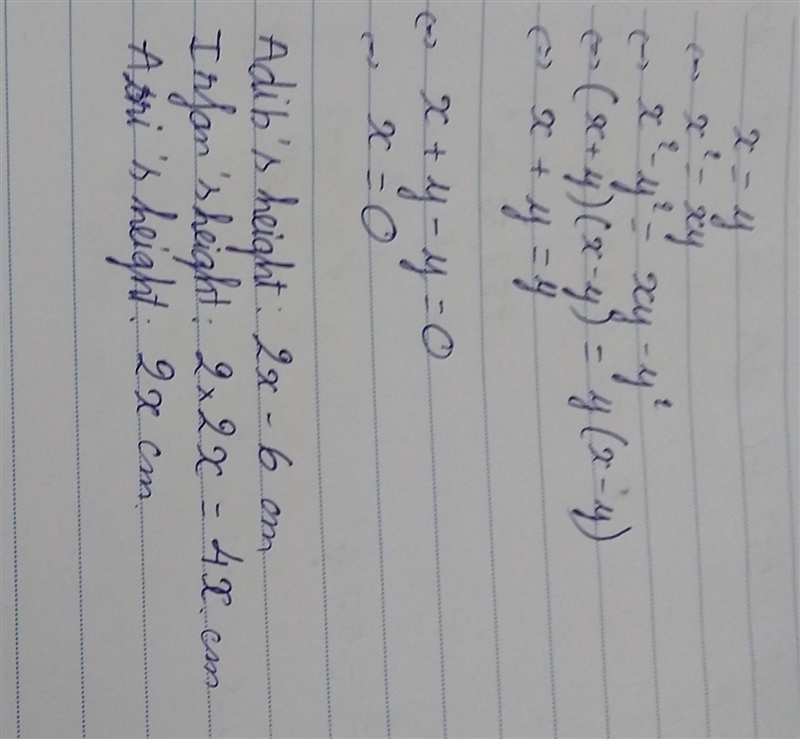 x = y
⇔ x² = xy
⇔ x² - y² = xy - y²
⇔ (x+y)(x-y) = y(x-y)
⇔ x + y = y
⇔ x + y - y = 0
⇔ x = 0
Adib's height: 2x - 6 cm
Irfan's height: 2×2x = 4x cm
height: 2x cm